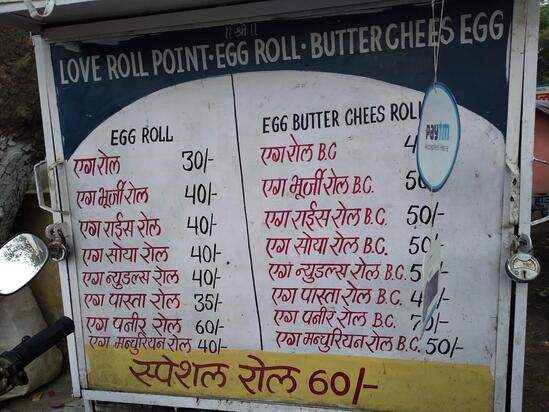 ॥ श्री ॥
LOVE ROLL POINT · EGG ROLL · BUTTER CHEES EGG
EGG ROLL
एग रोल 30/-
एग भूर्जी रोल 40/-
एग राईस रोल 40/-
एग सोया रोल 40/-
एग न्युडल्स रोल 40/-
एग पास्ता रोल 35/-
एग पनीर रोल 60/-
एग मन्चुरियन रोल 40/-
EGG BUTTER CHEES ROLL
एग रोल B.C
एग भूर्जी रोल B.C.
एग राईस रोल B.C. 50/-
एग सोया रोल B.C. 50/-
एग न्युडल्स रोल B.C.
एग पास्ता रोल B.C.
एग पनीर रोल B.C.
एग मन्चुरियन रोल B.C. 50/-
स्पेशल रोल 60/-
paytm
Accepted Here